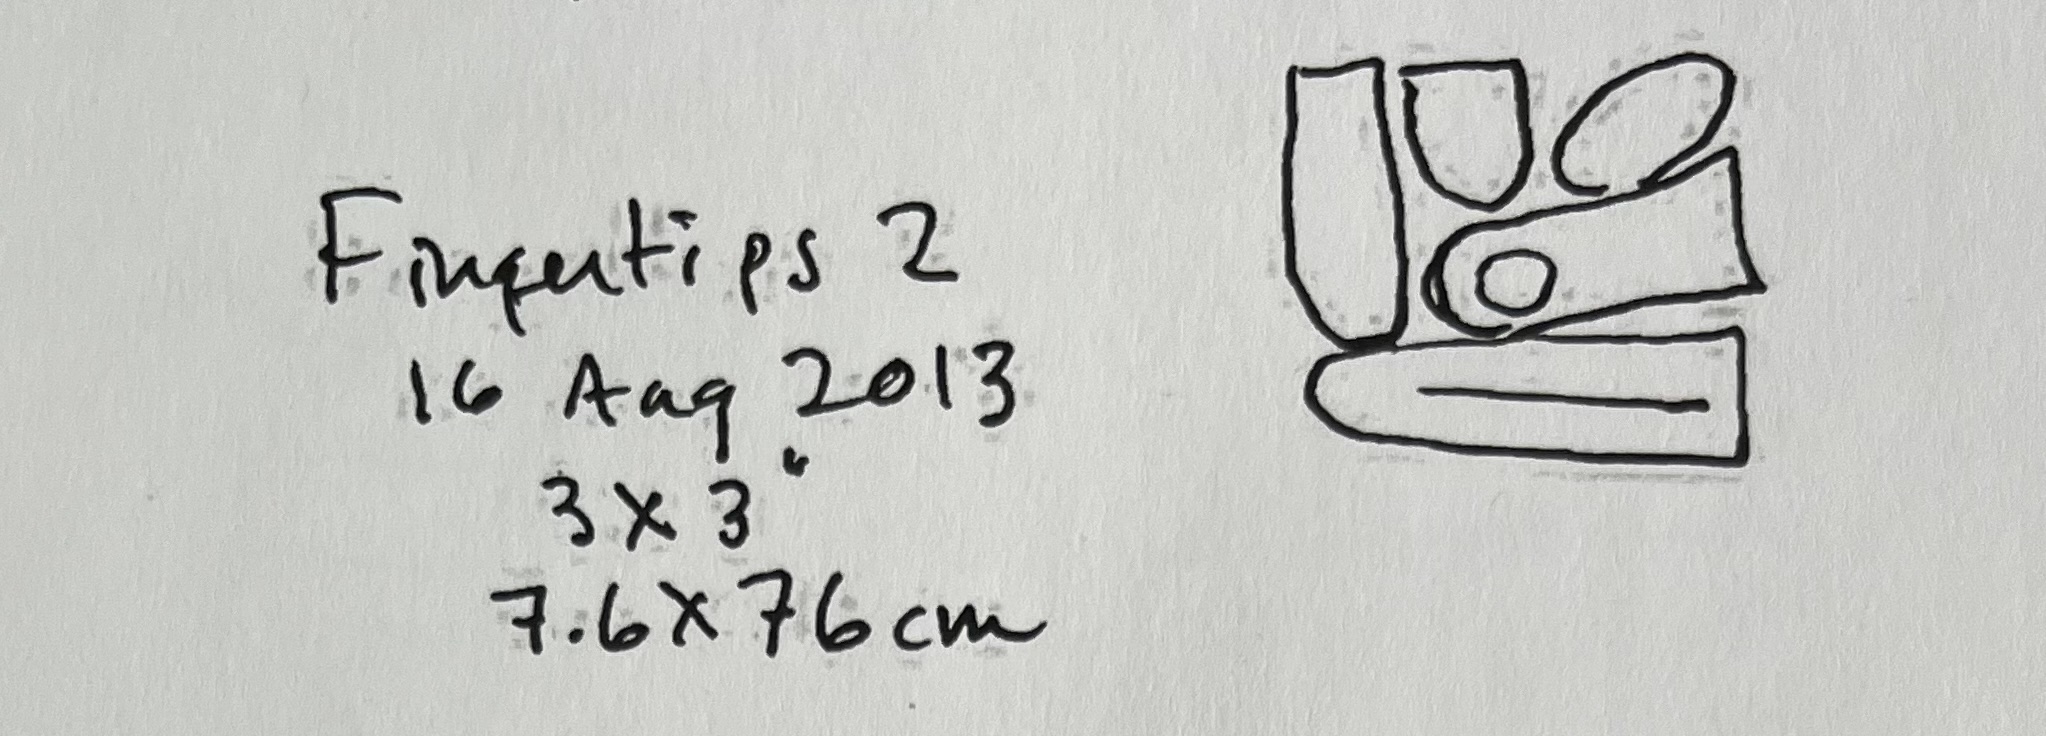 Fingertips 2
16 Aug 2013
3 x 3"
7.6 x 76 cm